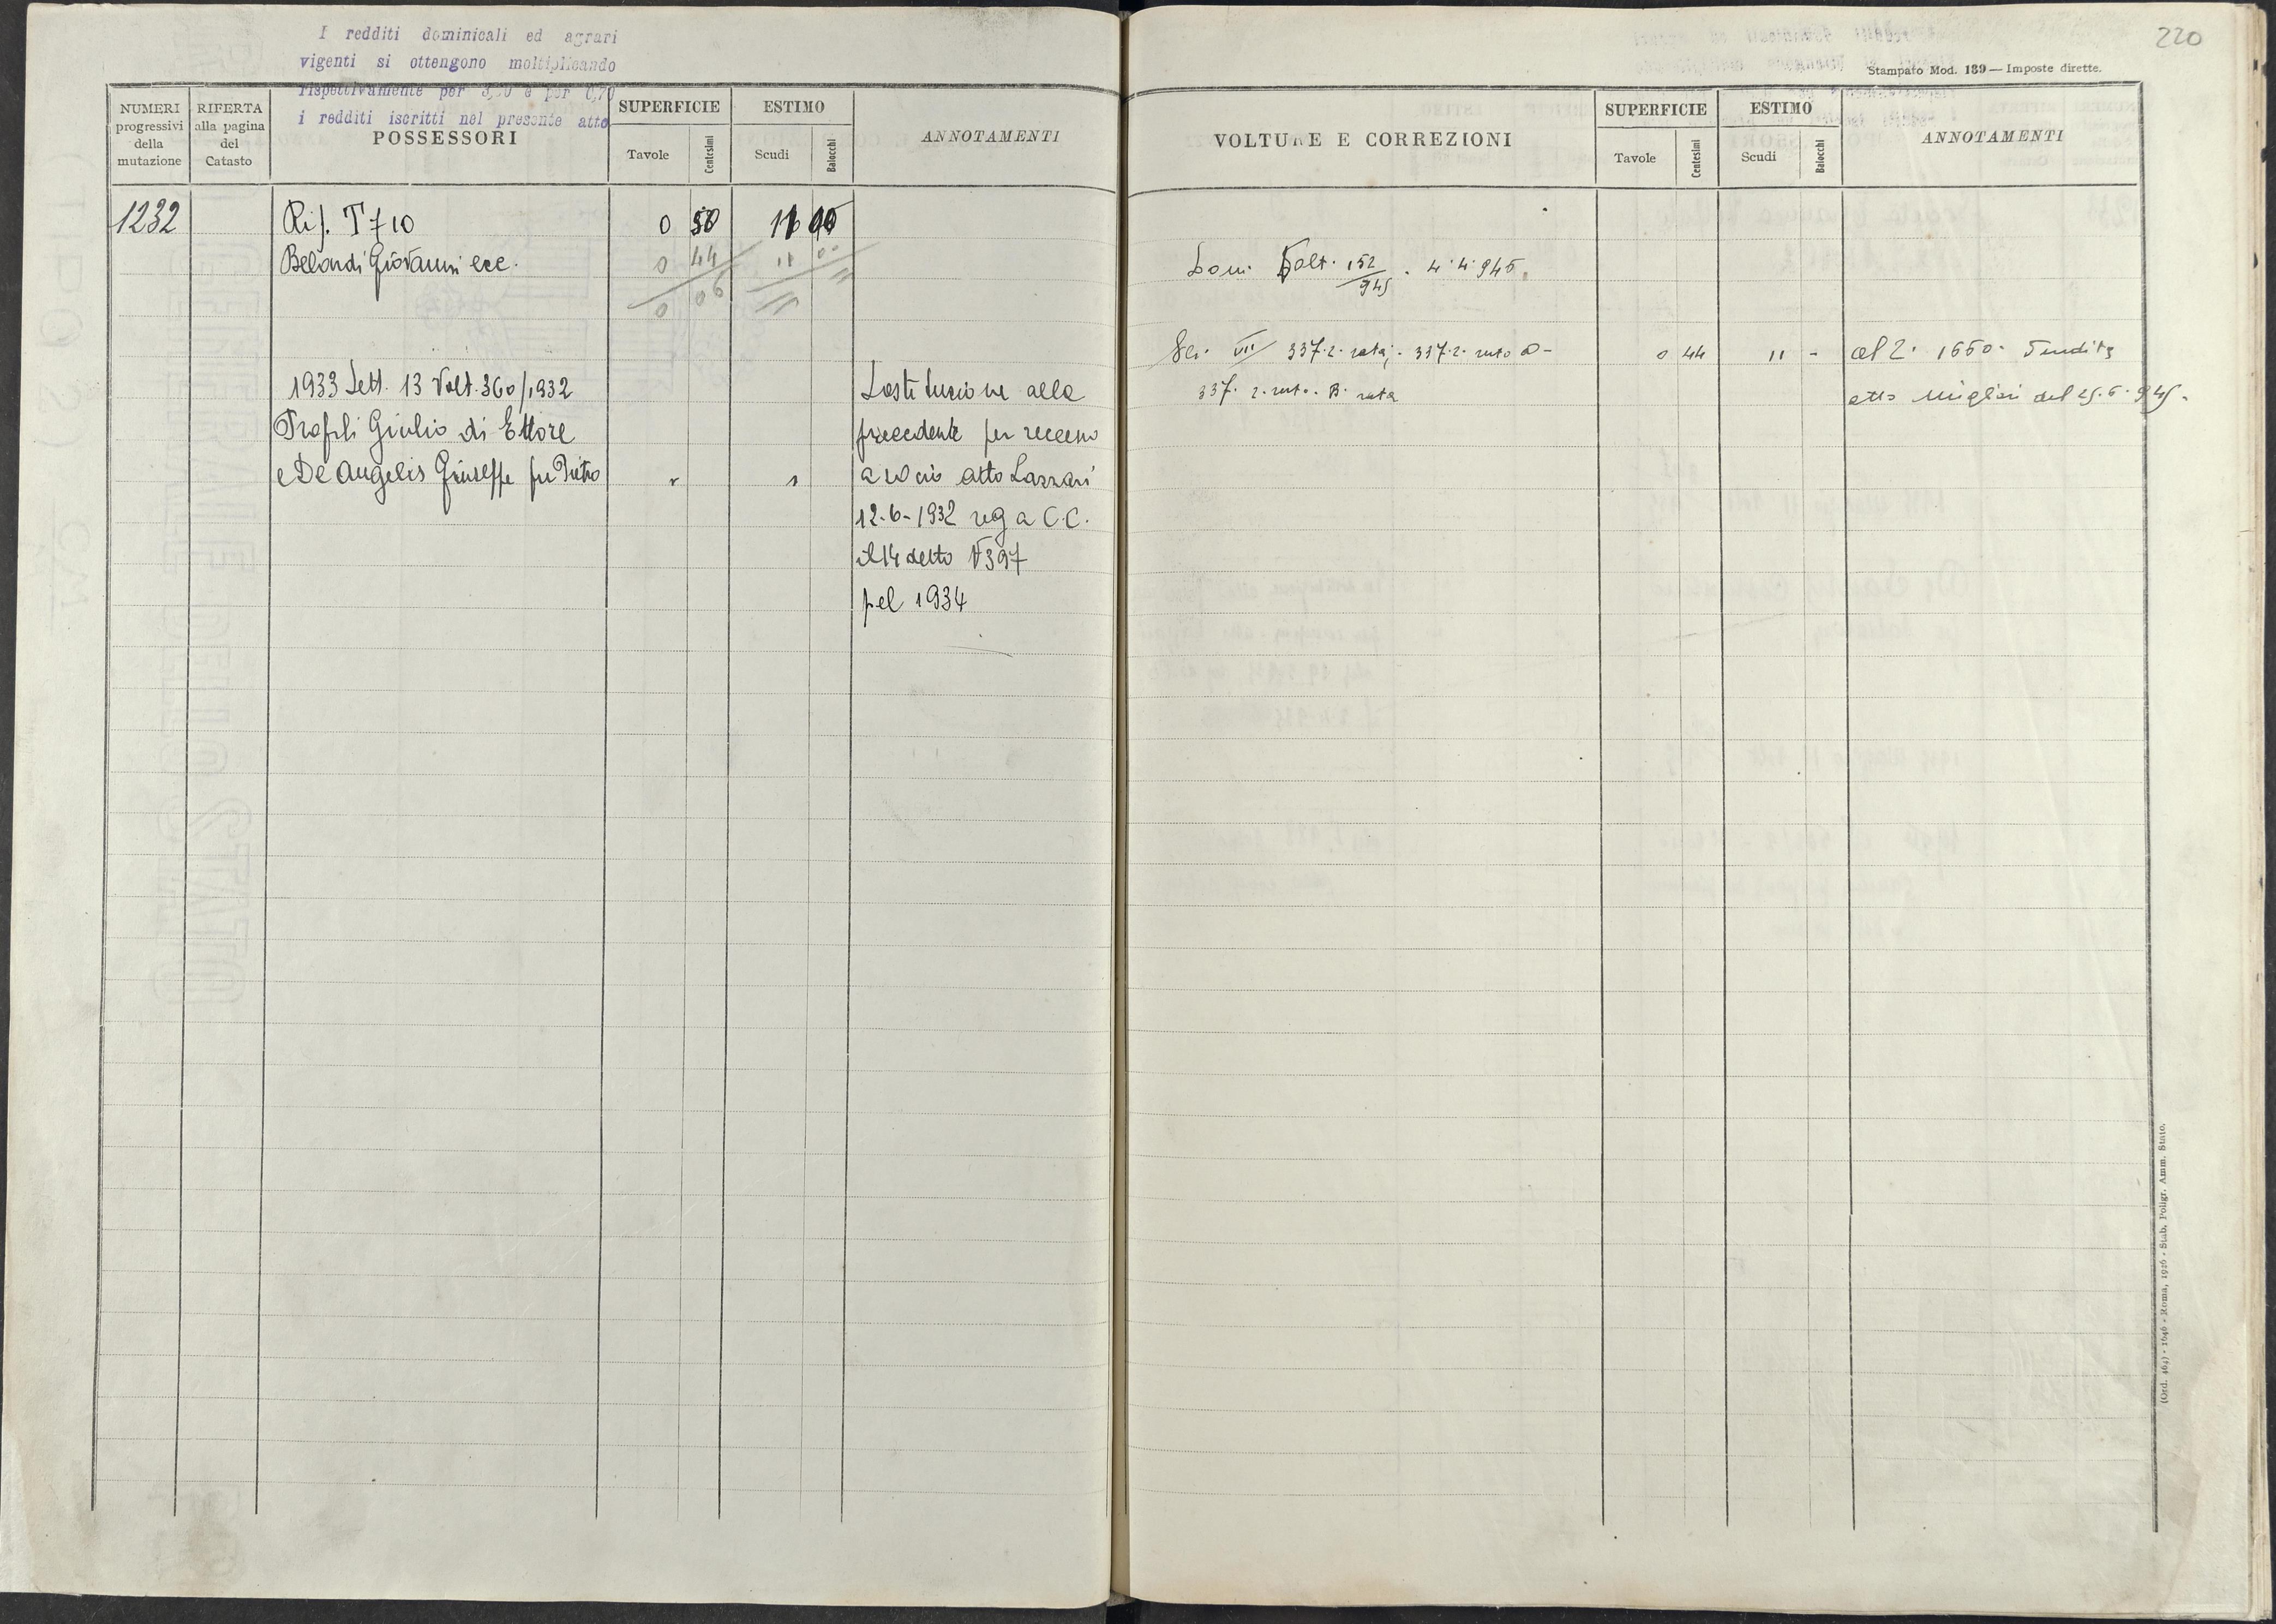 I redditi dominicali ed agrari
vigenti si ottengono moltiplicando
rispettivamente per e per 0,70
i redditi iscritti nel presente atto
NUMERI
progressivi
della
mutazione
RIFERTA
alla pagina
del
Catasto
POSSESSORI
SUPERFICIE
Tavole
Centesimi
ESTIMO
Scudi
Baiocchi
ANNOTAMENTI
1232
Rif. T 710
0 50
Belardi Giovanni ecc.
0 44
11 00
0 06
0
1933 Sett. 13 Volt. 360/1932
Giulio di Ettore
e De Angelis Giuseppe fu Pietro
alla
precedente per recesso
atto Lazzari
12-6-1932 reg a C.C.
il 14 detto N 397
pel 1934
220
Stampato Mod. 139 — Imposte dirette.
VOLTURE E CORREZIONI
SUPERFICIE
Tavole
Centesimi
ESTIMO
Scudi
Baiocchi
ANNOTAMENTI
Dom. Volt. 152/945. 4.4.945.
Sez. VII 337.2. rata; 337.2. sub
0 44
11 -
al 2. 1660. Vendita
337. 2. sub. B. rata
atto Migliori del 25.6.945.
(Ord. 464) - 1646 - Roma, 1926 - Stab. Poligr. Amm. Stato.